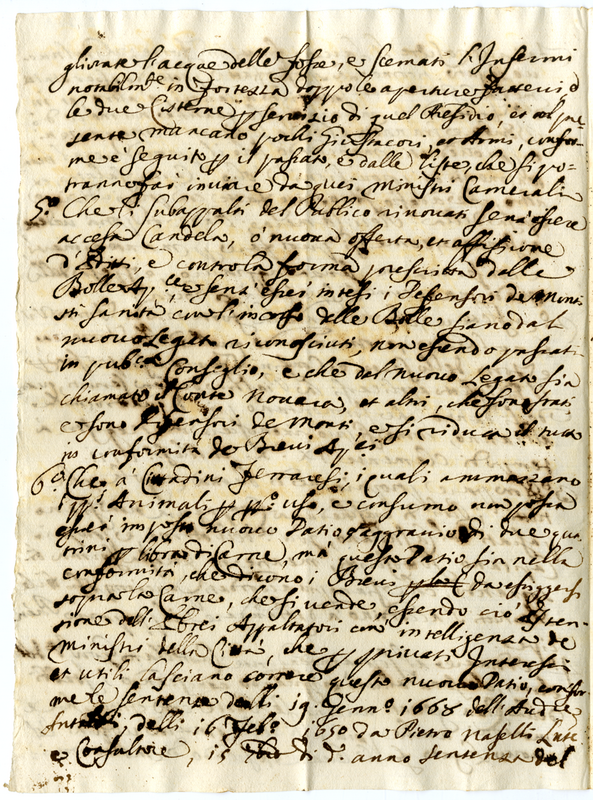 gliorate l'acque delle fosse, e scemati l'Infermi
notabilm.te in Fortezza doppo le aperture
le due Cisterne p servizio di quel Presidio, et al pre-
sente mancano pochi et Armi, confor-
me è seguito p il passato, e dalle liste, che si po-
tranno inviare da quei Ministri Camerali
5.° Che li subappalti del Publico rinovati senz'essere
accesa Candela, ò nuova offerta, et affissione
d'Editti, e contro la forma prescritta dalle
Bolle Ap.ce e senz'esser intesi i Defensori de Monti
delle Bolle siano dal
nuovo Legato riconosciuti, non essendo passati
in pub.co Conseglio, e che dal nuovo Legato sia
chiamato il Conte Novara, et altri, che sono stati
e sono Defensori de Monti, e si riduca il tutto
in conformità de Brevi Ap.ci
6.° Che à Cittadini Ferraresi, i quali ammazzano
Animali p pp.o uso, e consumo non possa
esser imposto nuovo Datio ò aggravio di due qua-
trini p libra di Carne, mà questo Datio sia nella
conformità, che dicono i Brevi da esiggersi
sopra la Carne, che si vende, essendo ciò
sione dell'Ebrei Appaltatori con intelligenza de
Ministri della Città, che p privati Interessi
et utili lasciano correre questo nuovo Datio, confor-
me le sentenze delli 19. Genn.o 1668 dell'
delli 16 Feb.o 1650 da Pietro Naselli
e Consultore, 15 di d.o anno sentenza del